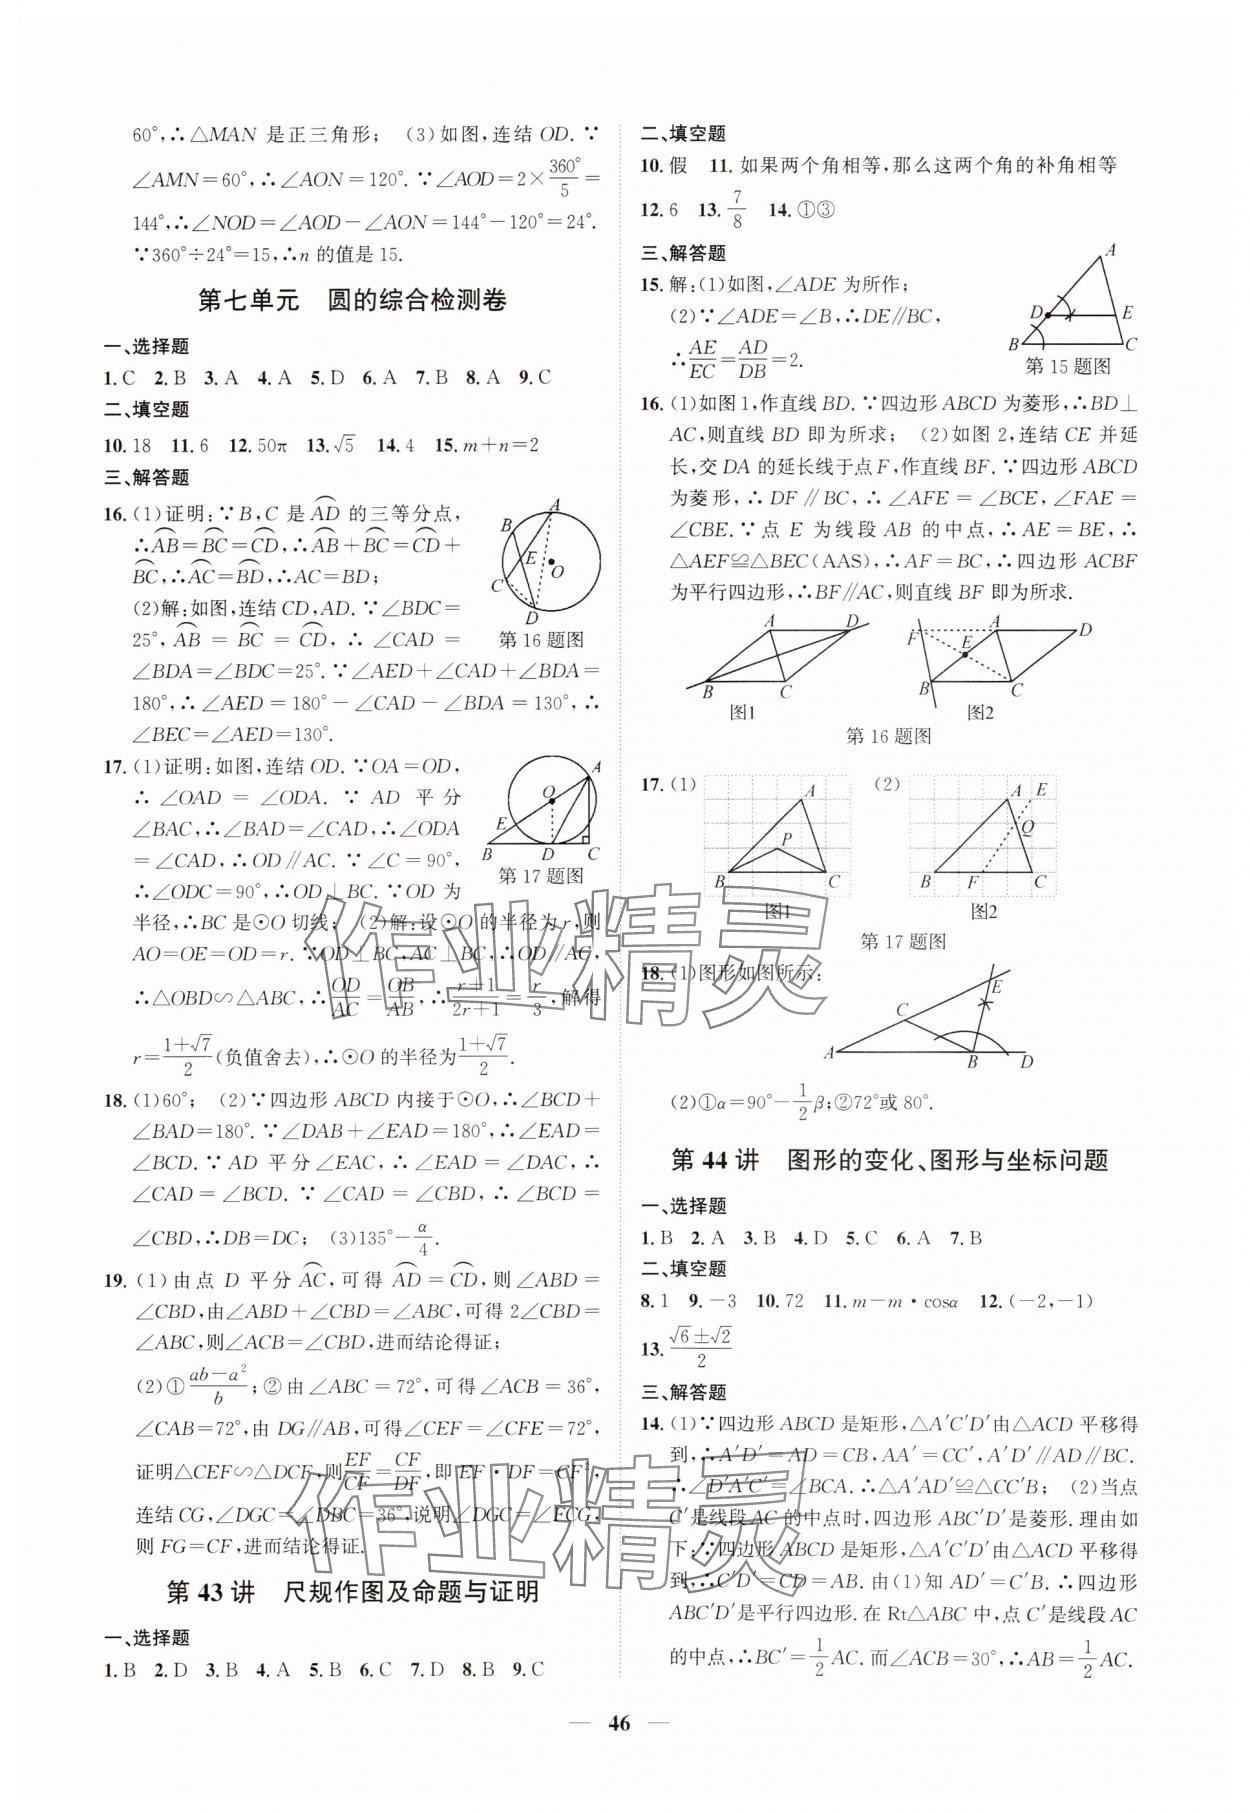 60°,∴△MAN 是正三角形； (3)如图,连结OD.∵
∠AMN=60°,∴∠AON=120°.∵∠AOD=2×360°/5=
144°,∴∠NOD=∠AOD-∠AON=144°-120°=24°.
∵360°÷24°=15,∴n的值是15.
第七单元 圆的综合检测卷
一、选择题
1.C 2.B 3.A 4.A 5.D 6.A 7.B 8.A 9.C
二、填空题
10.18 11.6 12.50π 13.√5 14.4 15.m+n=2
三、解答题
16.(1)证明:∵B,C是⌒AD的三等分点,
∴⌒AB=⌒BC=⌒CD,∴⌒AB+⌒BC=⌒CD+
⌒BC,∴⌒AC=⌒BD,∴AC=BD;
(2)解:如图,连结CD,AD.∵∠BDC=
25°,⌒AB=⌒BC=⌒CD,∴∠CAD=
A
B
E
O
C
D
第16题图
∠BDA=∠BDC=25°.∵∠AED+∠CAD+∠BDA=
180°,∴∠AED=180°-∠CAD-∠BDA=130°,∴
∠BEC=∠AED=130°.
17.(1)证明:如图,连结OD.∵OA=OD,
∴∠OAD=∠ODA.∵AD平分
∠BAC,∴∠BAD=∠CAD,∴∠ODA
=∠CAD,∴OD∥AC.∵∠C=90°,
∴∠ODC=90°,∴OD⊥BC.∵OD为
A
O
E
B
D
C
第17题图
半径,∴BC是⊙O切线; (2)解:设⊙O的半径为r,则
AO=OE=OD=r.∵OD⊥BC,AC⊥BC,∴OD∥AC,
∴△OBD∽△ABC,∴OD/AC=OB/AB,∴(r+1)/(2r+1)=r/3,解得
r=(1+√7)/2(负值舍去),∴⊙O的半径为(1+√7)/2.
18.(1)60°; (2)∵四边形ABCD内接于⊙O,∴∠BCD+
∠BAD=180°.∵∠DAB+∠EAD=180°,∴∠EAD=
∠BCD.∵AD平分∠EAC,∴∠EAD=∠DAC,∴
∠CAD=∠BCD.∵∠CAD=∠CBD,∴∠BCD=
∠CBD,∴DB=DC; (3)135°-α/4.
19.(1)由点D平分⌒AC,可得⌒AD=⌒CD,则∠ABD=
∠CBD,由∠ABD+∠CBD=∠ABC,可得2∠CBD=
∠ABC,则∠ACB=∠CBD,进而结论得证;
(2)①(ab-a²)/b;②由∠ABC=72°,可得∠ACB=36°,
∠CAB=72°,由DG∥AB,可得∠CEF=∠CFE=72°,
证明△CEF∽△DCF,则EF/CF=CF/DF,即EF·DF=CF²,
连结CG,∠DGC=∠DBC=36°,说明∠DGC=∠ECG,
则FG=CF,进而结论得证.
第43讲 尺规作图及命题与证明
一、选择题
1.B 2.D 3.B 4.A 5.B 6.C 7.D 8.B 9.C
二、填空题
10.假 11.如果两个角相等,那么这两个角的补角相等
12.6 13.7/8 14.①③
三、解答题
15.解:(1)如图,∠ADE为所作;
(2)∵∠ADE=∠B,∴DE∥BC,
∴AE/EC=AD/DB=2.
A
D
E
B
C
第15题图
16.(1)如图1,作直线BD.∵四边形ABCD为菱形,∴BD⊥
AC,则直线BD即为所求; (2)如图2,连结CE并延
长,交DA的延长线于点F,作直线BF.∵四边形ABCD
为菱形,∴DF∥BC,∴∠AFE=∠BCE,∠FAE=
∠CBE.∵点E为线段AB的中点,∴AE=BE,∴
△AEF≌△BEC(AAS),∴AF=BC,∴四边形ACBF
为平行四边形,∴BF∥AC,则直线BF即为所求.
A
D
B
C
图1
F
A
D
E
B
C
图2
第16题图
17.(1)
A
P
B
C
图1
(2)
A
E
Q
B
F
C
图2
第17题图
18.(1)图形如图所示:
E
C
A
B
D
(2)①α=90°-1/2β;②72°或80°.
第44讲 图形的变化、图形与坐标问题
一、选择题
1.B 2.A 3.B 4.D 5.C 6.A 7.B
二、填空题
8.1 9.-3 10.72 11.m-m·cosα 12.(-2,-1)
13.(√6±√2)/2
三、解答题
14.(1)∵四边形ABCD是矩形,△A′C′D′由△ACD平移得
到,∴A′D′=AD=CB,AA′=CC′,A′D′∥AD∥BC.
∴∠D′A′C′=∠BCA.∴△A′AD′≌△CC′B; (2)当点
C′是线段AC的中点时,四边形ABC′D′是菱形.理由如
下:∵四边形ABCD是矩形,△A′C′D′由△ACD平移得
到,∴C′D′=CD=AB.由(1)知AD′=C′B.∴四边形
ABC′D′是平行四边形.在Rt△ABC中,点C′是线段AC
的中点,∴BC′=1/2AC.而∠ACB=30°,∴AB=1/2AC.
46
作业精灵
作业精灵